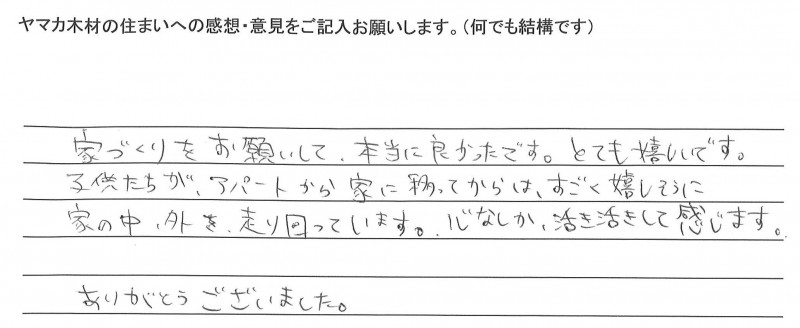 ヤマカ木材の住まいへの感想・意見をご記入お願いします。(何でも結構です)
家づくりをお願いして、本当に良かったです。とても嬉しいです。
子供たちが、アパートから家に移ってからは、すごく嬉しそうに
家の中、外を、走り回っています。心なしか、活き活きして感じます。
ありがとうございました。